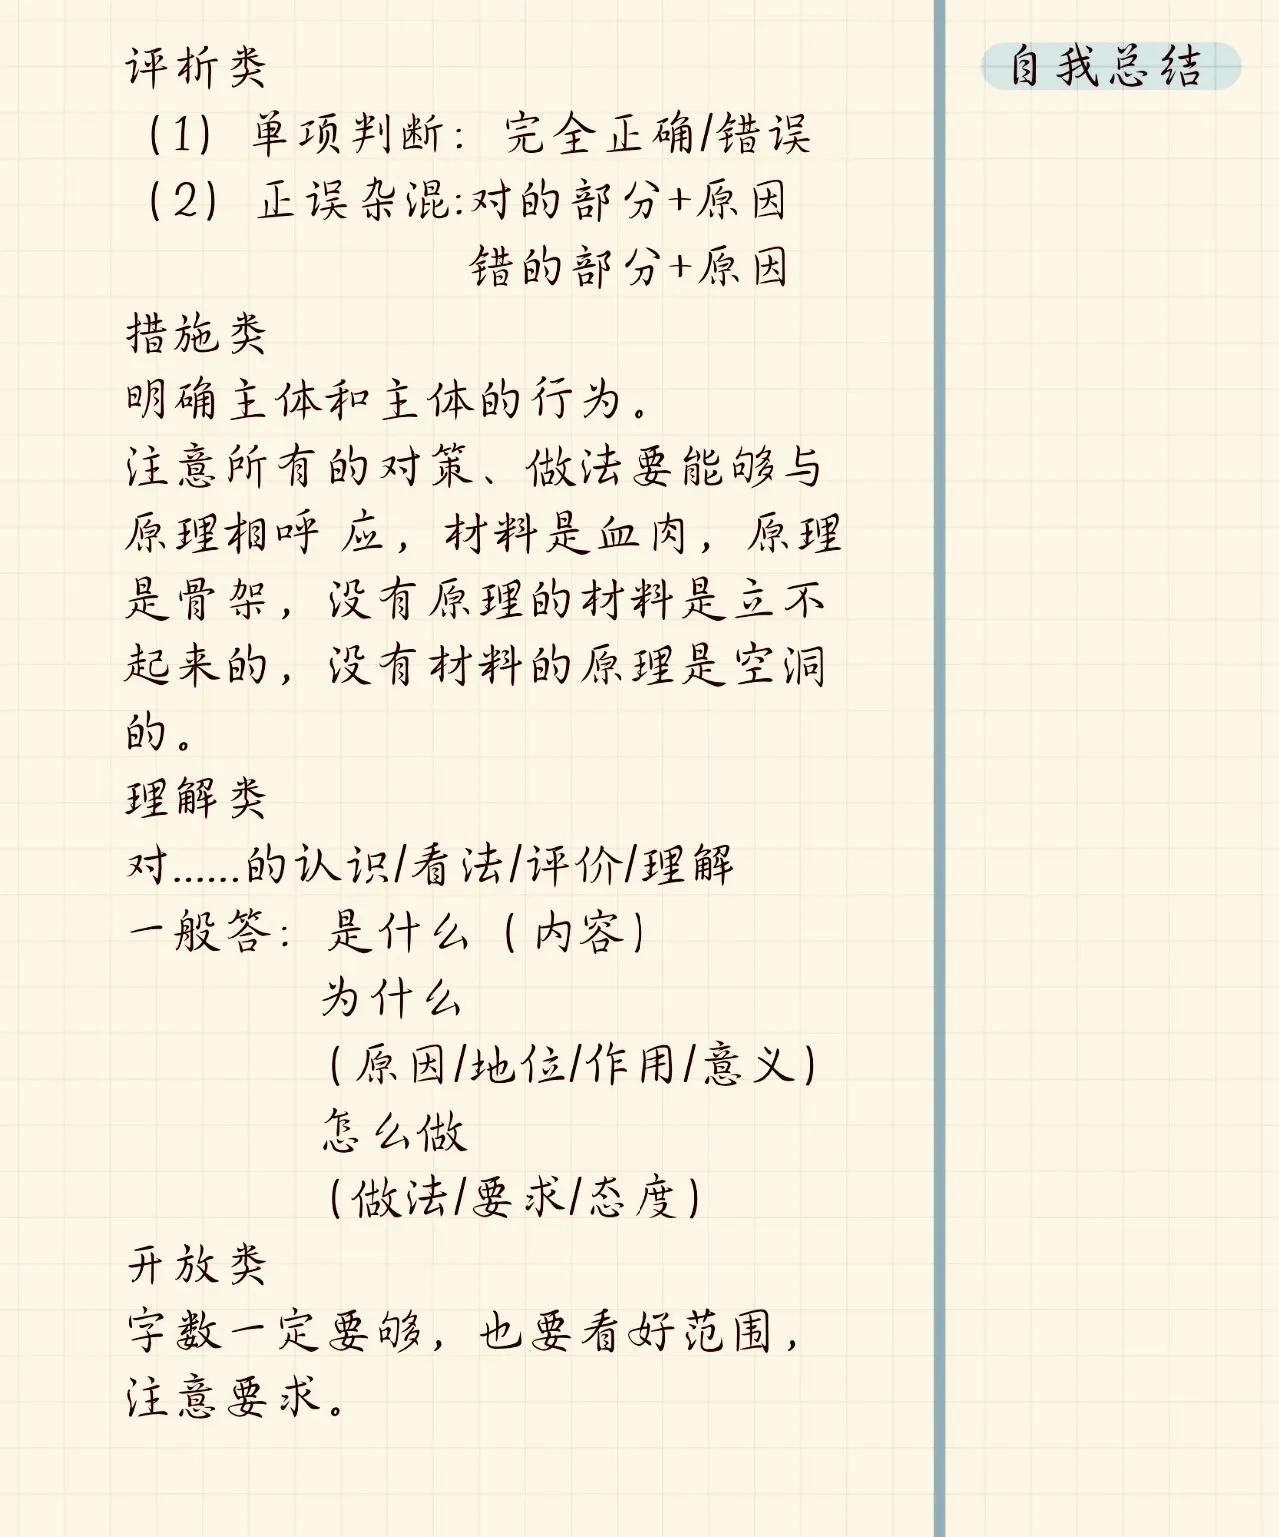 评析类
（1）单项判断：完全正确/错误
（2）正误杂混:对的部分+原因
错的部分+原因
措施类
明确主体和主体的行为。
注意所有的对策、做法要能够与
原理相呼 应，材料是血肉，原理
是骨架，没有原理的材料是立不
起来的，没有材料的原理是空洞
的。
理解类
对......的认识/看法/评价/理解
一般答：是什么（内容）
为什么
（原因/地位/作用/意义）
怎么做
（做法/要求/态度）
开放类
字数一定要够，也要看好范围，
注意要求。
自我总结